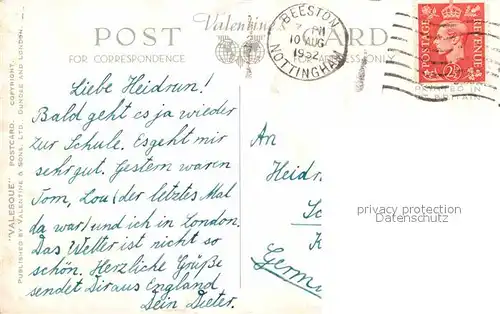 POST CARD
Valentine's
FOR CORRESPONDENCE
ADDRESS ONLY
BEESTON
PM
10 AUG
1952
NOTTINGHAM
POSTAGE
REVENUE
2½D
PRINTED IN
"VALESQUE" POSTCARD. COPYRIGHT.
PUBLISHED BY VALENTINE & SONS, LTD. DUNDEE AND LONDON.
Liebe Heidrun!
Bald geht es ja wieder
zur Schule. Es geht mir
sehr gut. Gestern waren
Tom, Lou (der letztes Mal
da war) und ich in London.
Das Wetter ist nicht so
schön. Herzliche Grüße
sendet Dir aus England
Dein Dieter.
An
Heidr
Germ
privacy protection
Datenschutz